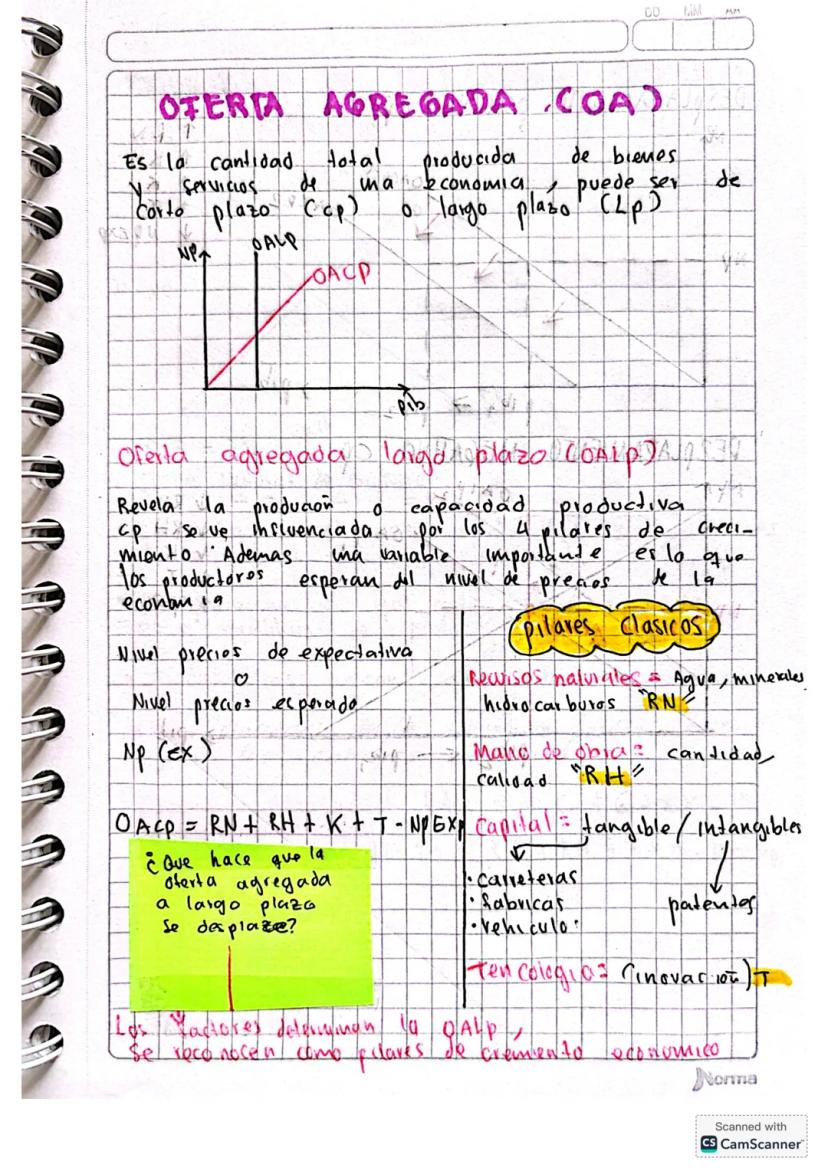 DD MM MM
OFERTA AGREGADA (OA)
Es la cantidad total producida de bienes
y servicios de una economia, puede ser de
Corto plazo (cp) o largo plazo (Lp)
NP
OALP
OACP
Pib
Oferta agregada largo plazo (OALp)
Revela la produción o capacidad productiva
cp se ve influenciada por los 4 pilares de creci-
miento. Ademas una variable importante es lo que
los productores esperan del nivel de precios de la
economia
Nivel precios de expectativa
o
Nivel precios esperado
Np (Ex)
OAcp = RN + RH + K + T - NpExp
¿Que hace que la
oferta agregada
a largo plazo
se desplaze?
Pilares Clasicos
Recursos naturales = Agua, minerales
hidrocarburos "RN"
Mano de obra = cantidad,
calidad "RH"
Capital = tangible / intangibles
• carreteras
• fabricas
• vehiculo.
patentes
Tencologia = (inovación) T
Los factores determinan la OALp,
se reconocen como pilares de cremiento economico
Norma
Scanned with
CS CamScanner